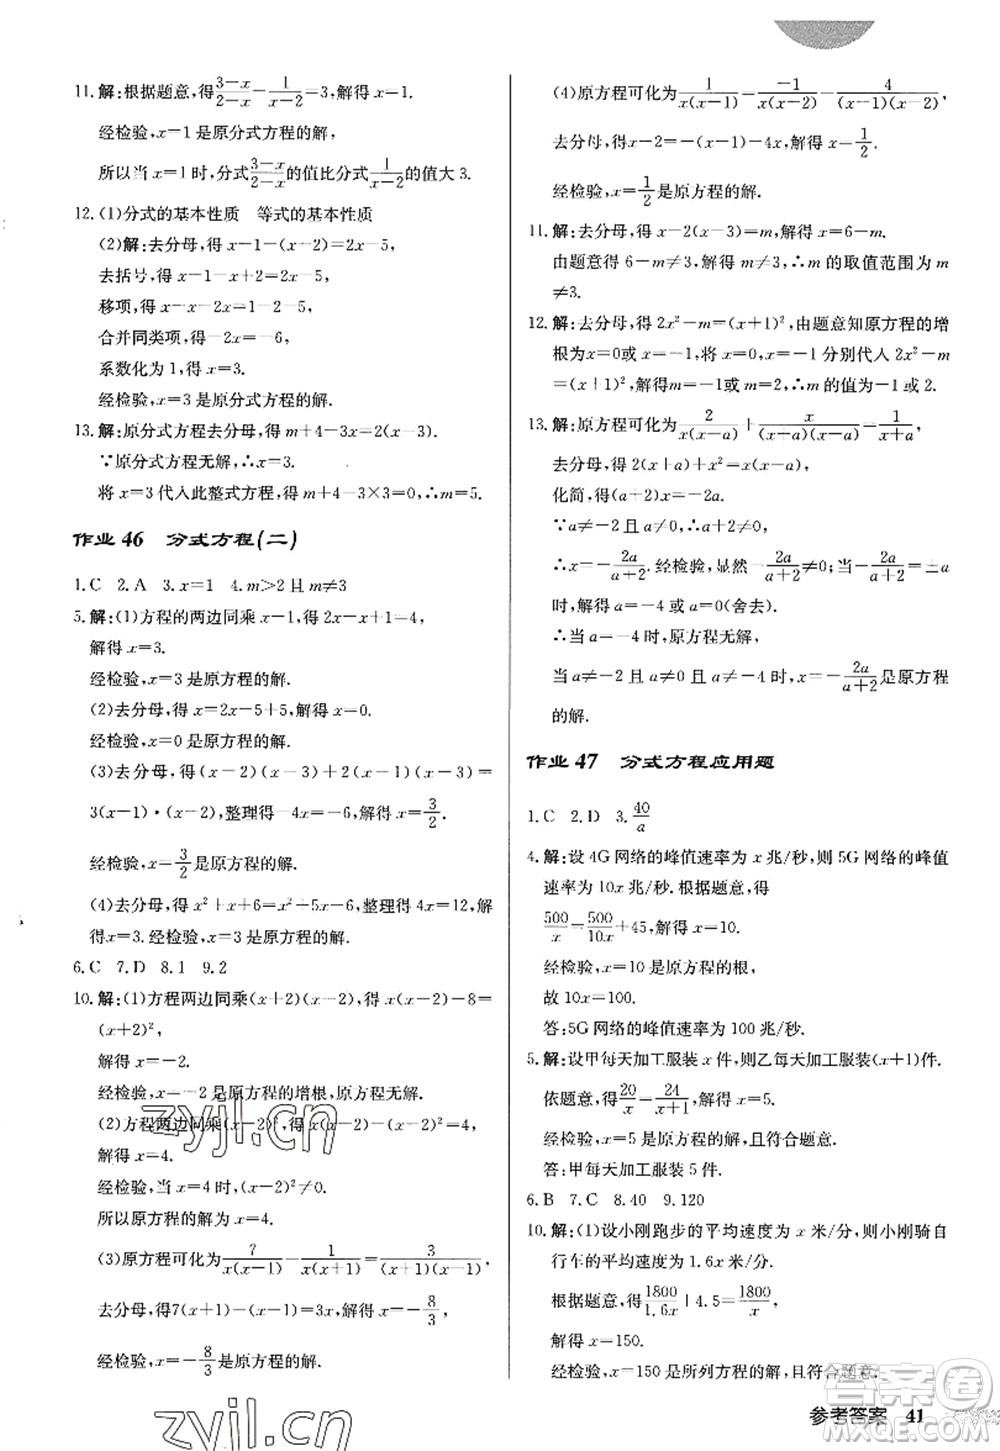 11.解:根据题意,得\frac{3-x}{2-x}-\frac{1}{x-2}=3,解得x=1.
经检验,x=1是原分式方程的解,
所以当x=1时,分式\frac{3-x}{2-x}的值比分式\frac{1}{x-2}的值大3.
12.(1)分式的基本性质 等式的基本性质
(2)解:去分母,得x-1-(x-2)=2x-5,
去括号,得x-1-x+2=2x-5,
移项,得x-x-2x=1-2-5,
合并同类项,得-2x=-6,
系数化为1,得x=3.
经检验,x=3是原分式方程的解.
13.解:原分式方程去分母,得m+4-3x=2(x-3).
∵原分式方程无解,∴x=3.
将x=3代入此整式方程,得m+4-3×3=0,∴m=5.
作业46 分式方程(二)
1.C 2.A 3.x=1 4.m>2且m≠3
5.解:(1)方程的两边同乘x-1,得2x-x+1=4,
解得x=3.
经检验,x=3是原方程的解.
(2)去分母,得x=2x-5+5,解得x=0.
经检验,x=0是原方程的解.
(3)去分母,得(x-2)(x-3)+2(x-1)(x-3)=
3(x-1)·(x-2),整理得-4x=-6,解得x=\frac{3}{2}.
经检验,x=\frac{3}{2}是原方程的解.
(4)去分母,得x²+x+6=x²-5x+6,整理得4x=12,解
得x=3.经检验,x=3是原方程的解.
6.C 7.D 8.1 9.2
10.解:(1)方程两边同乘(x+2)(x-2),得x(x-2)-8=
(x+2)²,
解得x=-2.
经检验,x=-2是原方程的增根,原方程无解.
(2)方程两边同乘(x-2)²,得x(x-2)-(x-2)²=4,
解得x=4.
经检验,当x=4时,(x-2)²≠0.
所以原方程的解为x=4.
(3)原方程可化为\frac{7}{x(x-1)}-\frac{1}{x(x+1)}=\frac{3}{(x+1)(x-1)},
去分母,得7(x+1)-(x-1)=3x,解得x=-\frac{8}{3}.
经检验,x=-\frac{8}{3}是原方程的解.
(4)原方程可化为\frac{1}{x(x-1)}=\frac{-1}{x(x-2)}-\frac{4}{(x-1)(x-2)},
去分母,得x-2=-(x-1)-4x,解得x=\frac{1}{2}.
经检验,x=\frac{1}{2}是原方程的解.
11.解:去分母,得x-2(x-3)=m,解得x=6-m.
由题意得6-m≠3,解得m≠3,∴m的取值范围为m
≠3.
12.解:去分母,得2x²-m=(x+1)²,由题意知原方程的增
根为x=0或x=-1,将x=0或x=-1分别代入2x²-m
=(x+1)²,解得m=-1或m=2,∴m的值为-1或2.
13.解:原方程可化为\frac{2}{x(x-a)}+\frac{x}{(x-a)(x+a)}=\frac{1}{x+a},
去分母,得2(x+a)+x²=x(x-a),
化简,得(a+2)x=-2a.
∵a≠-2且a≠0,
∴x=-\frac{2a}{a+2}.经检验,显然-\frac{2a}{a+2}≠0,-\frac{2a}{a+2}=±a
时,解得a=-4或a=0(舍去).
∴当a=-4时,原方程无解,
当a≠-2且a≠0且a≠-4时,x=-\frac{2a}{a+2}是原方程
的解.
作业47 分式方程应用题
1.C 2.D 3.\frac{40}{a}
4.解:设4G网络的峰值速率为x兆/秒,则5G网络的峰值
速率为10x兆/秒.根据题意,得
\frac{500}{x}=\frac{500}{10x}+45,解得x=10.
经检验,x=10是原方程的根,
故10x=100.
答:5G网络的峰值速率为100兆/秒.
5.解:设甲每天加工服装x件,则乙每天加工服装(x+1)件.
依题意,得\frac{20}{x}=\frac{24}{x+1},解得x=5.
经检验,x=5是原方程的解,且符合题意.
答:甲每天加工服装5件.
6.B 7.C 8.40 9.120
10.解:(1)设小刚跑步的平均速度为x米/分,则小刚骑自
行车的平均速度为1.6x米/分.
根据题意,得\frac{1800}{1.6x}+4.5=\frac{1800}{x},
解得x=150.
经检验,x=150是所列方程的解,且符合题意.
参考答案 41
zyjl.cn
zyjl.cn
答案圈